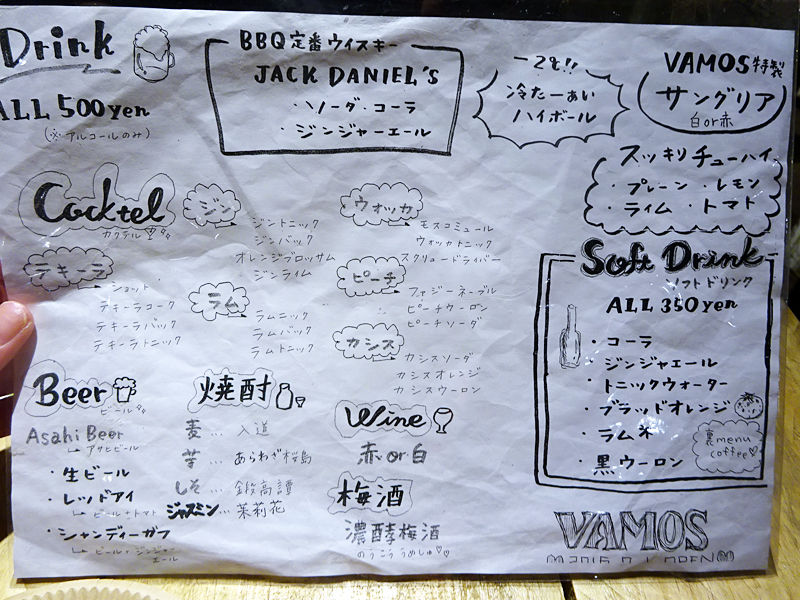 Drink
ALL 500yen
(※アルコールのみ)
BBQ定番ウイスキー
JACK DANIEL'S
・ソーダ・コーラ
・ジンジャーエール
冷たーぁい
ハイボール
VAMOS特製
サングリア
白or赤
スッキリチューハイ
・プレーン ・レモン
・ライム ・トマト
Cocktel
カクテル
ジン
ジントニック
ジンバック
オレンジブロッサム
ジンライム
ウォッカ
モスコミュール
ウォッカトニック
スクリュードライバー
テキーラ
ショット
テキーラコーク
テキーラバック
テキーラトニック
ラム
ラムニック
ラムバック
ラムトニック
ピーチ
ファジーネーブル
ピーチウーロン
ピーチソーダ
カシス
カシスソーダ
カシスオレンジ
カシスウーロン
Soft Drink
ソフトドリンク
ALL 350yen
・コーラ
・ジンジャエール
・トニックウォーター
・ブラッドオレンジ
・ラムネ
・黒ウーロン
裏menu
coffee♡
Beer
ビール
Asahi Beer
アサヒビール
・生ビール
・レッドアイ
ビール+トマト
・シャンディーガフ
ビール+ジンジャー
エール
焼酎
麦…入道
芋…あらわざ桜島
しそ…鍛高譚
ジャスミン…茉莉花
Wine
赤or白
梅酒
濃酵梅酒
のうこううめしゅ♡♡
VAMOS